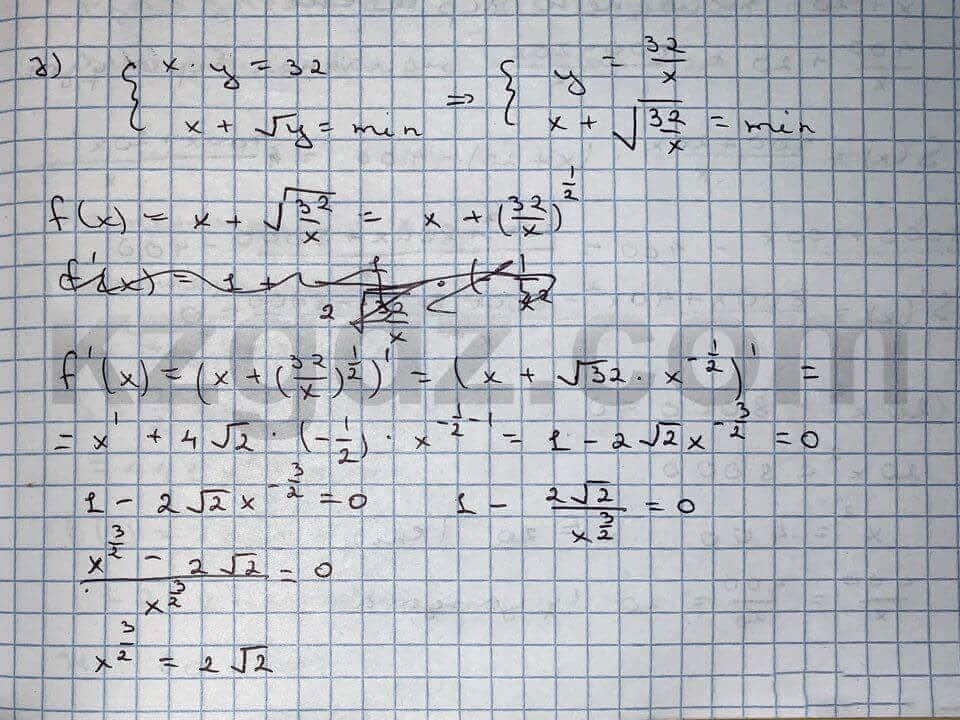 2) { x · y = 32 => { y = 32/x
x + √y = min x + √(32/x) = min
f(x) = x + √(32/x) = x + (32/x)^(1/2)
f'(x) = (x + (32/x)^(1/2))' = (x + √32 · x^(-1/2))' =
= x' + 4√2 · (-1/2) · x^(-1/2-1) = 1 - 2√2 x^(-3/2) = 0
1 - 2√2 x^(-3/2) = 0 1 - 2√2/x^(3/2) = 0
(x^(3/2) - 2√2)/x^(3/2) = 0
x^(3/2) = 2√2